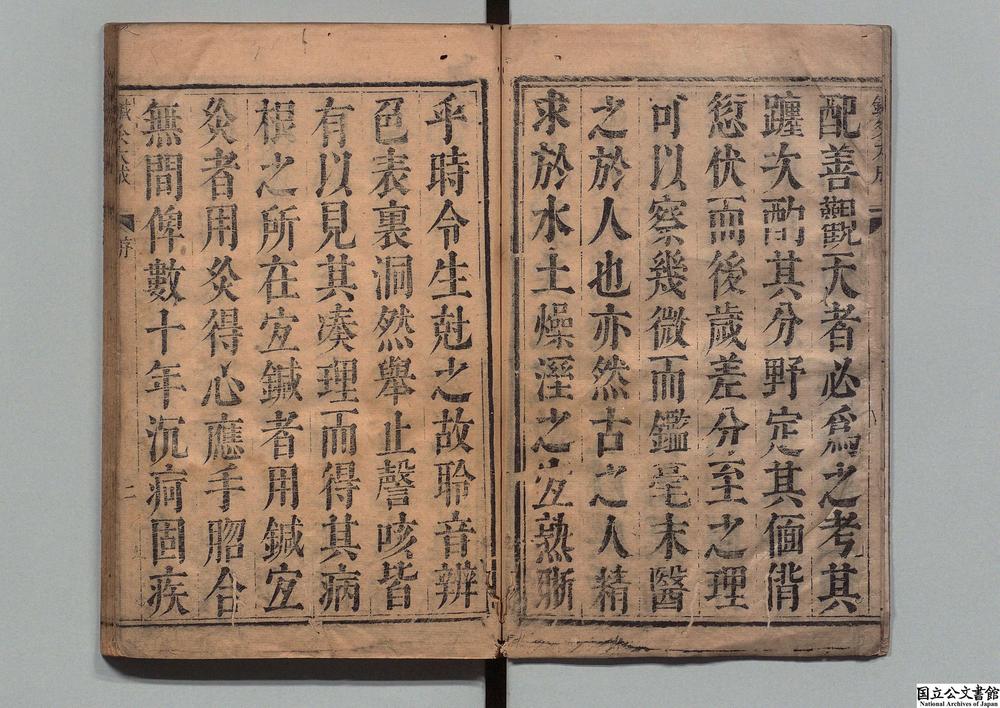 鍼灸大成
配善觀天者必爲之考其
躔次酌其分野定其偭偝
愆伏而後歲差分至之理
可以察幾微而鑑毫末醫
之於人也亦然古之人精
求於水土燥溼之宐熟
乎時令生尅之故聆音辨
色表裏洞然舉止謦咳皆
有以見其凑理而得其病
根之所在宐鍼者用鍼宐
灸者用灸得心應手脗合
無間俾數十年沉疴固疾
鍼灸大成
序
二
国立公文書館
National Archives of Japan